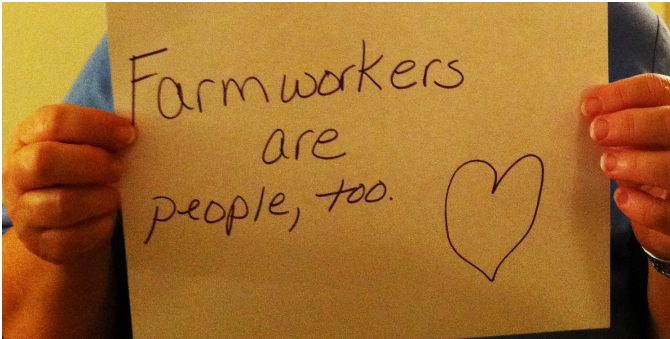 Farmworkers
are
people, too.